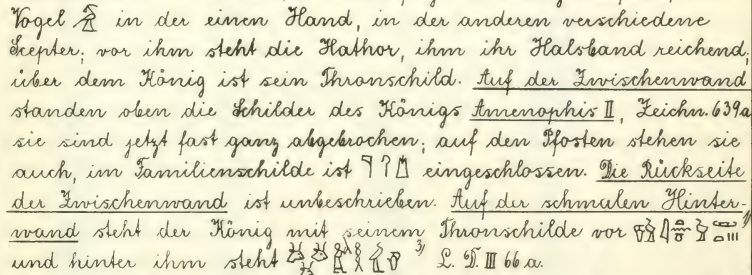 Vogel in der einen Hand, in der anderen verschiedene
Scepter; vor ihm steht die Hathor, ihm ihr Halsband reichend;
über dem König ist sein Thronschild. Auf der Zwischenwand
standen oben die Schilder des Königs Amenophis II, Zeichn. 639a
sie sind jetzt fast ganz abgebrochen; auf den Pfosten stehen sie
auch, im Familienschilde ist eingeschlossen. Die Rückseite
der Zwischenwand ist unbeschrieben. Auf der schmalen Hinter-
wand steht der König mit seinem Thronschilde vor
und hinter ihm steht 3) L. D. III 66 a.